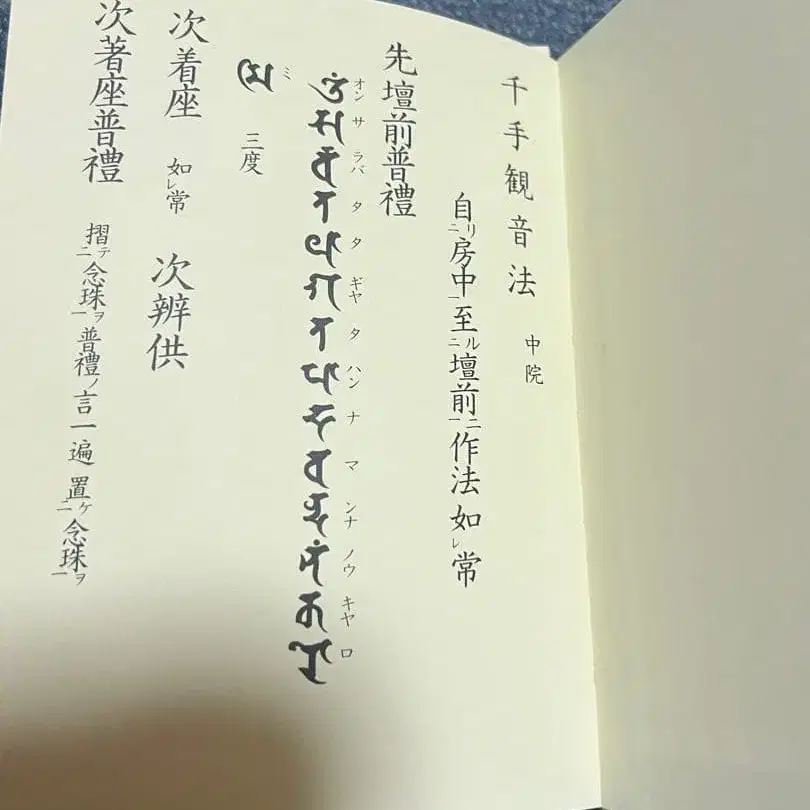 千手観音法 中院
自リ二房中一至ル二壇前ニ一作法如レ常
先壇前普禮
オン サ ラバ タ タ ギャ タ ハン ナ マ ンナ ノウ キャ ロ
𑖌𑖼𑖭𑖨𑖿𑖪𑖝𑖞𑖯𑖐𑖝𑖢𑖯𑖟𑖪𑖡𑖿𑖟𑖡𑖽𑖎𑖨𑖺
ミ
𑖦𑖰 三度
次着座 如レ常 次辨供
次著座普禮 摺テ二念珠ヲ一普禮ノ言一遍置ケ二念珠ヲ一